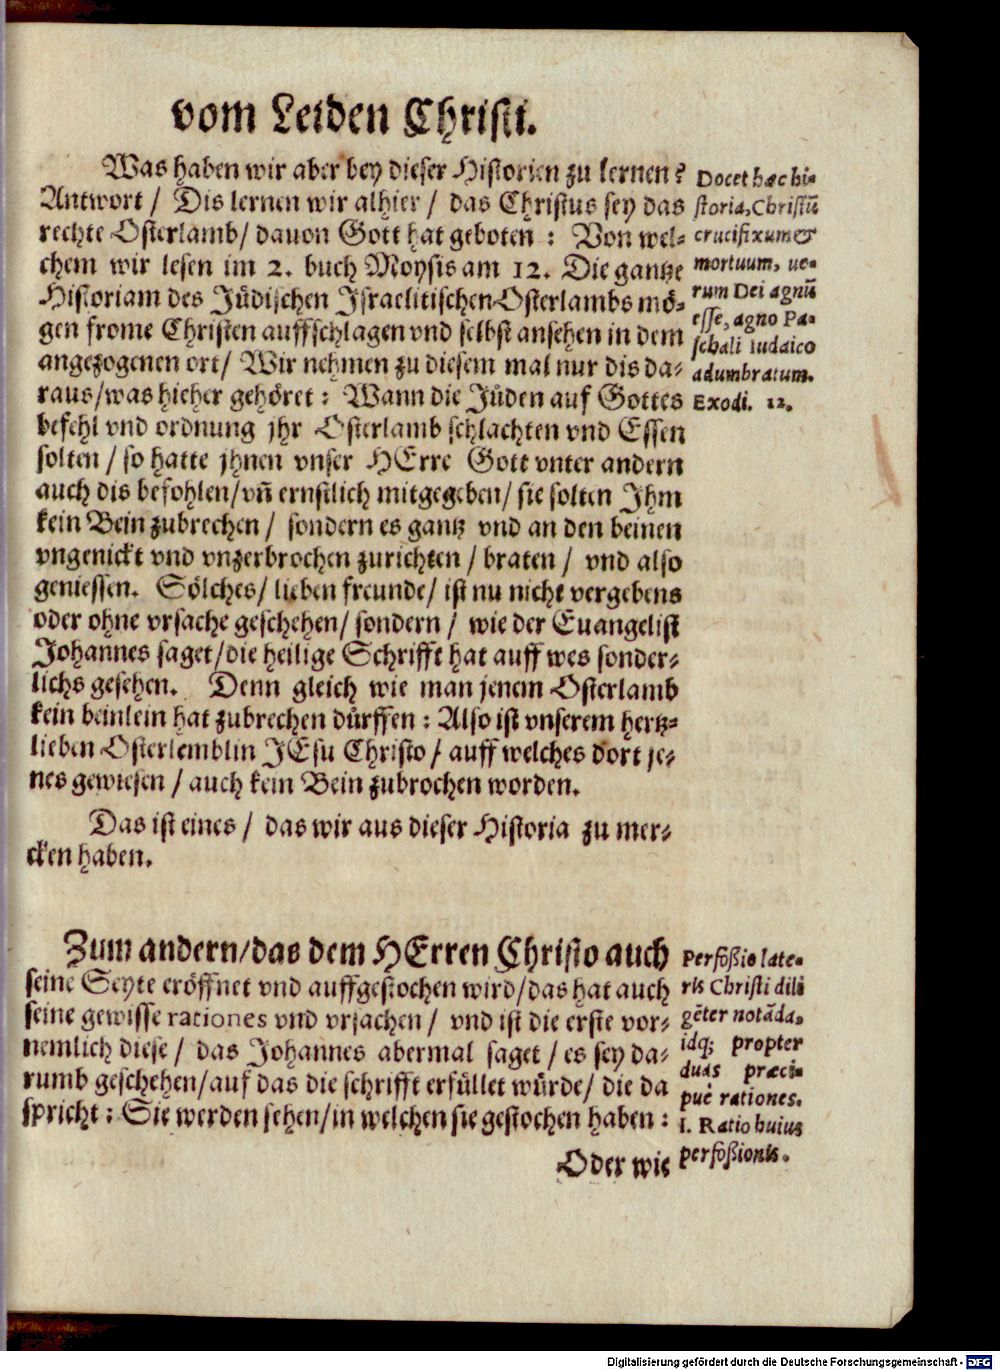 vom Leiden Christi.
Was haben wir aber bey dieser Historien zu lernen?
Antwort / Dis lernen wir alhier / das Christus sey das
rechte Osterlamb/ dauon Gott hat geboten : Von wel-
chem wir lesen im 2. buch Moysis am 12. Die gantze
Historiam des Jüdischen Israelitischen Osterlambs mö-
gen frome Christen auffschlagen vnd selbst ansehen in dem
angezogenen ort/ Wir nehmen zu diesem mal nur dis da-
raus/was hieher gehöret : Wann die Jüden auf Gottes
befehl vnd ordnung jhr Osterlamb schlachten vnd Essen
solten / so hatte jhnen vnser HErre Gott vnter andern
auch dis befohlen/vñ ernstlich mitgegeben/ sie solten Ihm
kein Bein zubrechen / sondern es gantz vnd an den beinen
vngenickt vnd vnzerbrochen zurichten / braten / vnd also
geniessen. Sölches/ lieben freunde/ ist nu nicht vergebens
oder ohne vrsache geschehen/ sondern / wie der Euangelist
Johannes saget/die heilige Schrifft hat auff wes sonder-
lichs gesehen. Denn gleich wie man jenem Osterlamb
kein beinlein hat zubrechen dürffen : Also ist vnserem hertz-
lieben Osterlemblin JEsu Christo / auff welches dort je-
nes gewiesen / auch kein Bein zubrochen worden.
Das ist eines / das wir aus dieser Historia zu mer-
cken haben.
Zum andern/das dem HErren Christo auch
seine Seyte eröffnet vnd auffgestochen wird/das hat auch
seine gewisse rationes vnd vrsachen / vnd ist die erste vor-
nemlich diese / das Johannes abermal saget / es sey da-
rumb geschehen/auf das die schrifft erfüllet würde/ die da
spricht : Sie werden sehen/in welchen sie gestochen haben :
Oder wie
Docet hæc hi-
storia, Christũ
crucifixum et
mortuum, ue-
rum Dei agnũ
esse, agno Pa-
schali Iudaico
adumbratum.
Exodi. 12.
Perfoßio late-
ris Christi dili
gẽter notãda,
idq; propter
duas præci-
puè rationes.
I. Ratio huius
perfoßionis.
Digitalisierung gefördert durch die Deutsche Forschungsgemeinschaft - DFG